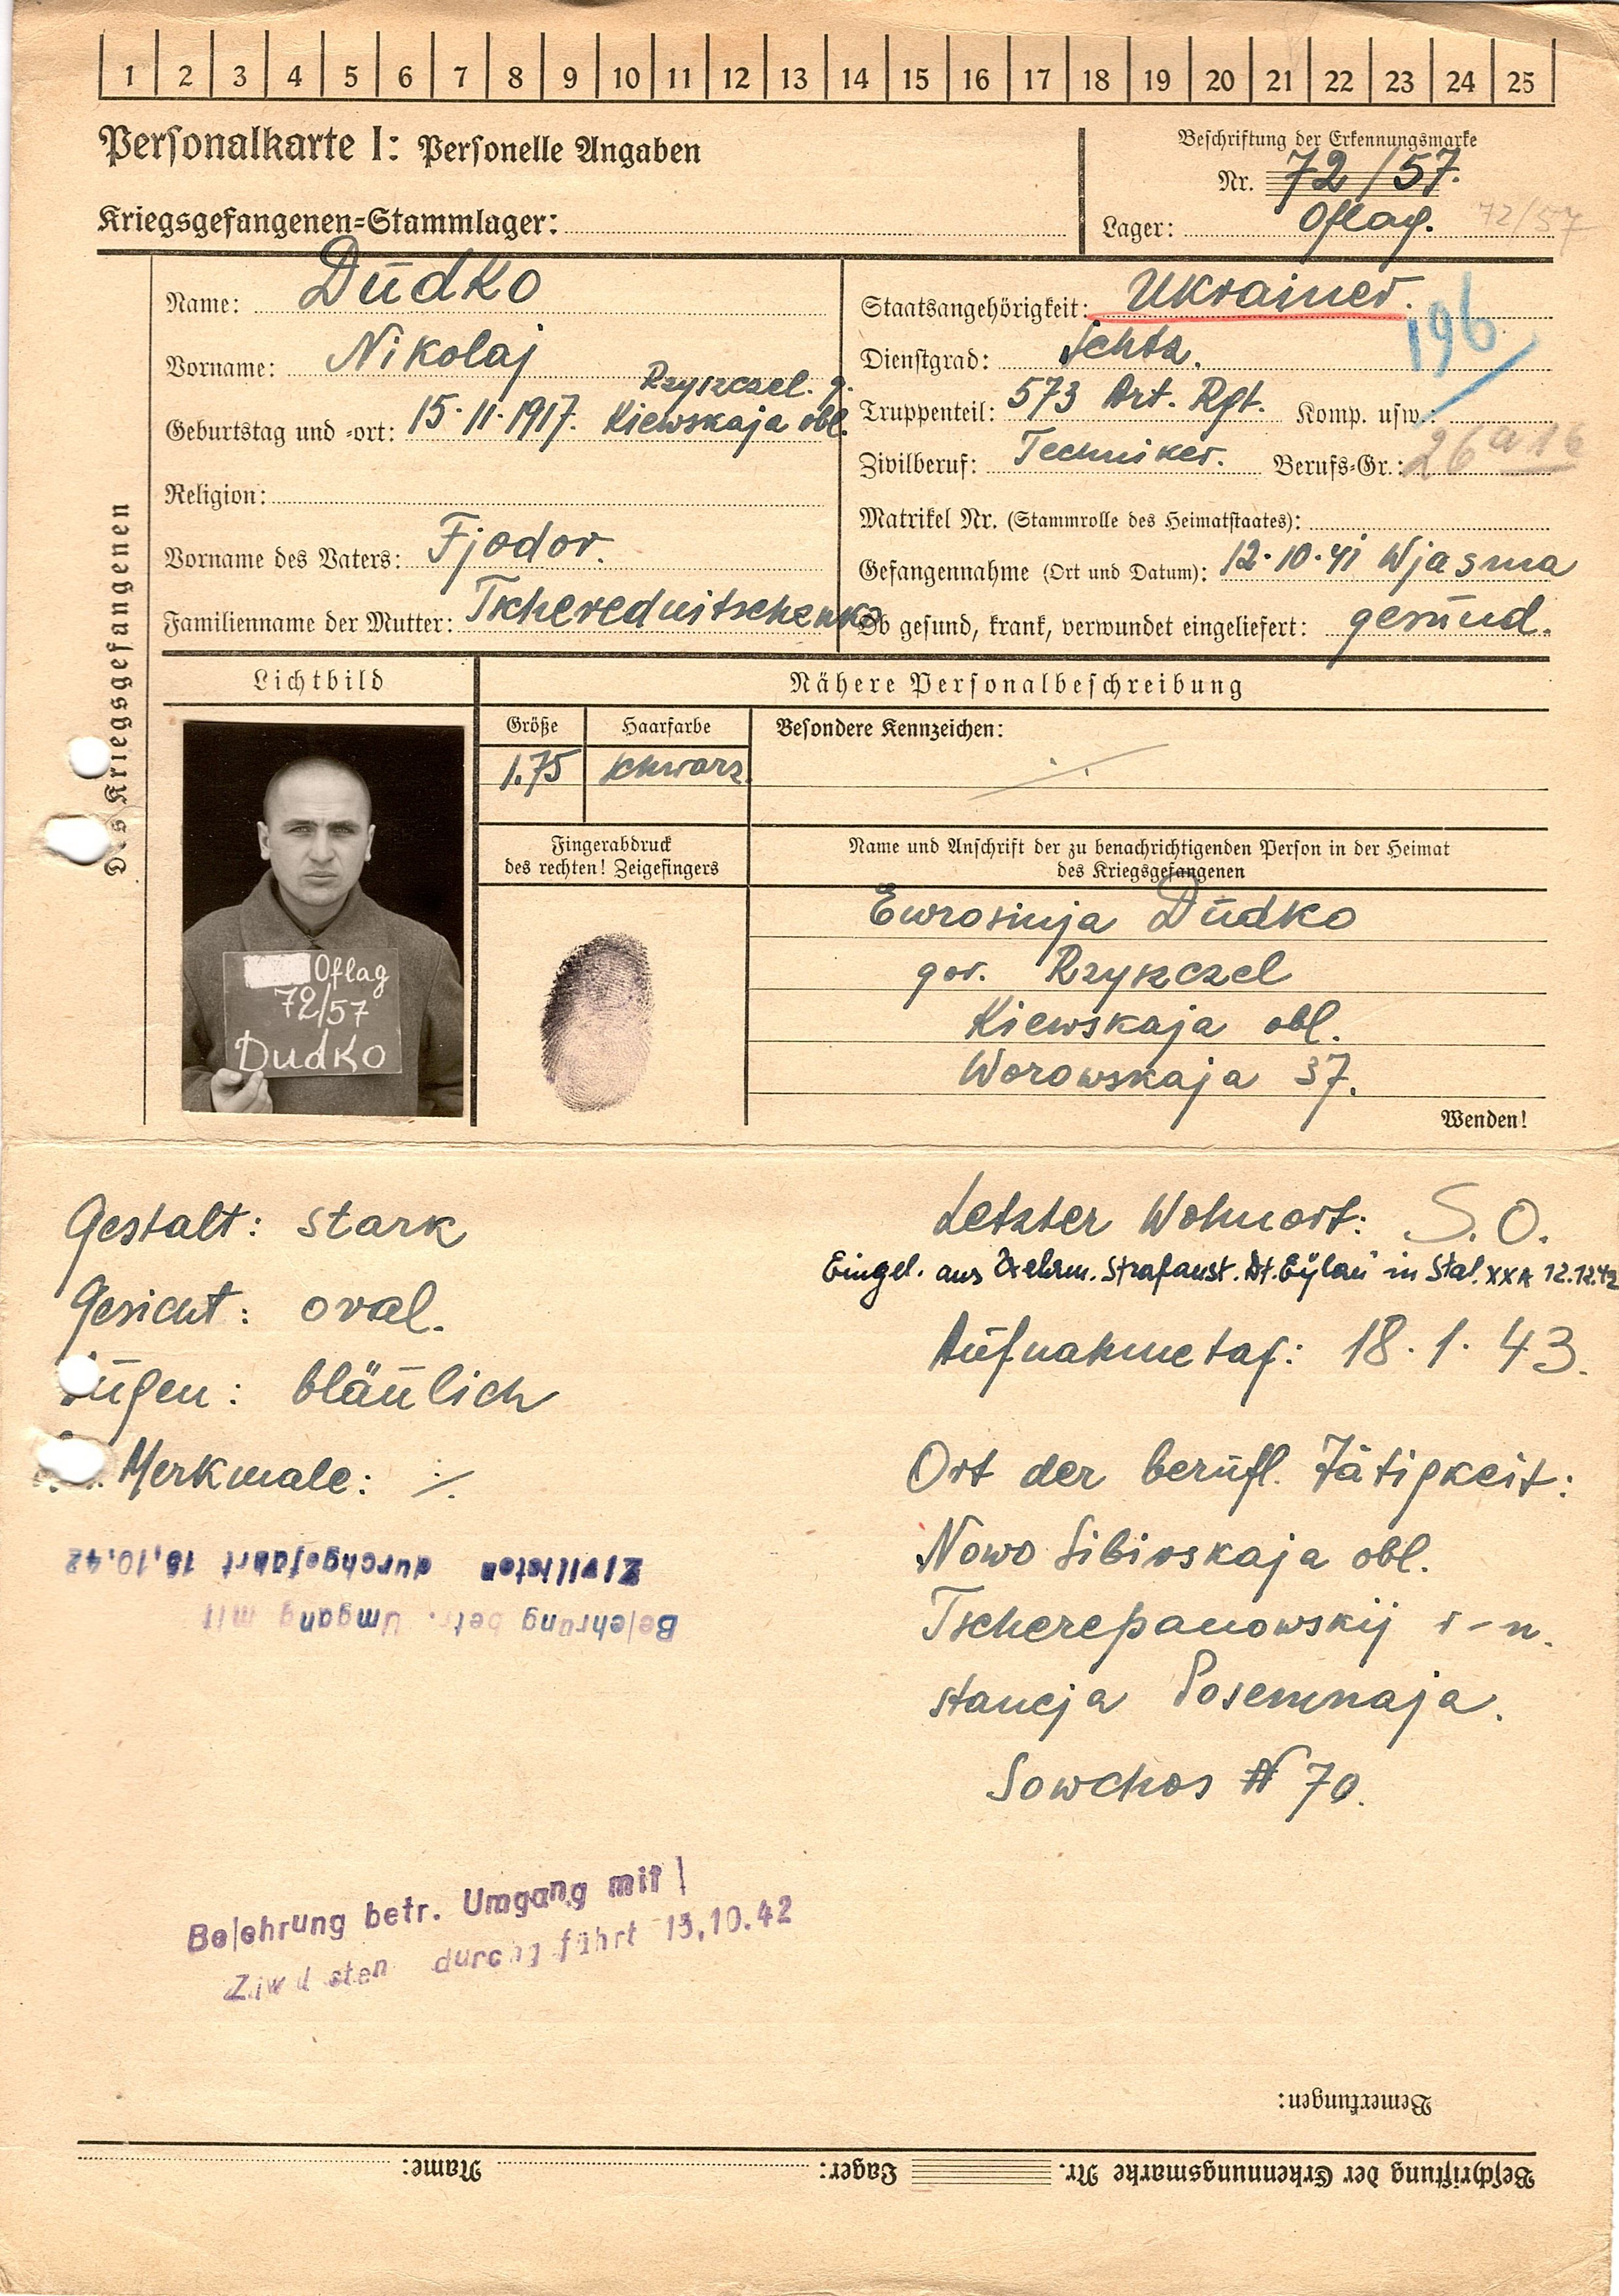 1 2 3 4 5 6 7 8 9 10 11 12 13 14 15 16 17 18 19 20 21 22 23 24 25
Personalkarte I: Personelle Angaben
Kriegsgefangenen-Stammlager:
Beschriftung der Erkennungsmarke
Nr. 72/57.
Lager: Oflag. 72/57
Des Kriegsgefangenen
Name: Dudko
Vorname: Nikolaj
Rzyszczel. g.
Geburtstag und -ort: 15.11.1917. Kiewskaja obl.
Religion:
Vorname des Vaters: Fjodor.
Familienname der Mutter: Tscherednitschenko
Staatsangehörigkeit: Ukrainer.
196
Dienstgrad: Schtz.
Truppenteil: 573 Art. Rgt. Komp. usw.:
Zivilberuf: Techniker. Berufs-Gr.: 26 a 16
Matrikel Nr. (Stammrolle des Heimatstaates):
Gefangennahme (Ort und Datum): 12.10.41 Wjasma
Ob gesund, krank, verwundet eingeliefert: gesund.
Lichtbild
Oflag
72/57
Dudko
Nähere Personalbeschreibung
Größe Haarfarbe Besondere Kennzeichen:
1.75 schwarz ./.
Fingerabdruck
des rechten! Zeigefingers
Name und Anschrift der zu benachrichtigenden Person in der Heimat
des Kriegsgefangenen
Ewrosinja Dudko
gor. Rzyszczel
Kiewskaja obl.
Worowskaja 37.
Wenden!
Gestalt: stark
Gesicht: oval.
Augen: bläulich
Merkmale: ./.
Letzter Wohnort: S.O.
Eingel. aus Wehrm. Strafanst. Dt. Eylau in Stal. XXA 12.12.42
Aufnahmetag: 18.1.43.
Ort der berufl. Tätigkeit:
Nowo Sibirskaja obl.
Tscherepanowskij r-n.
stancja Posewnaja.
Sowchos N 70.
Belehrung betr. Umgang mit
Zivilisten durchgeführt 13.10.42
Belehrung betr. Umgang mit
Zivilisten durchgeführt 13.10.42
Bemerkungen:
Beschriftung der Erkennungsmarke Nr. Lager: Name: